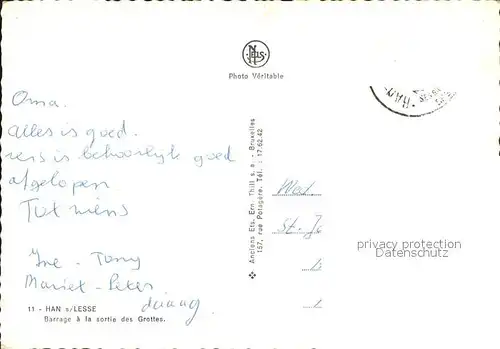 NELS
Photo Véritable
Oma.
Alles is goed.
reis is behoorlijk goed
afgelopen.
Tot ziens
- Tony
Mariet - Peter
daaag
11 - HAN s/LESSE
Barrage à la sortie des Grottes.
Anciens Ets. Ern. Thill s. a. - Bruxelles
157, rue Potagère. Tél. : 17.62.42
Wed.
St. J
privacy protection
Datenschutz